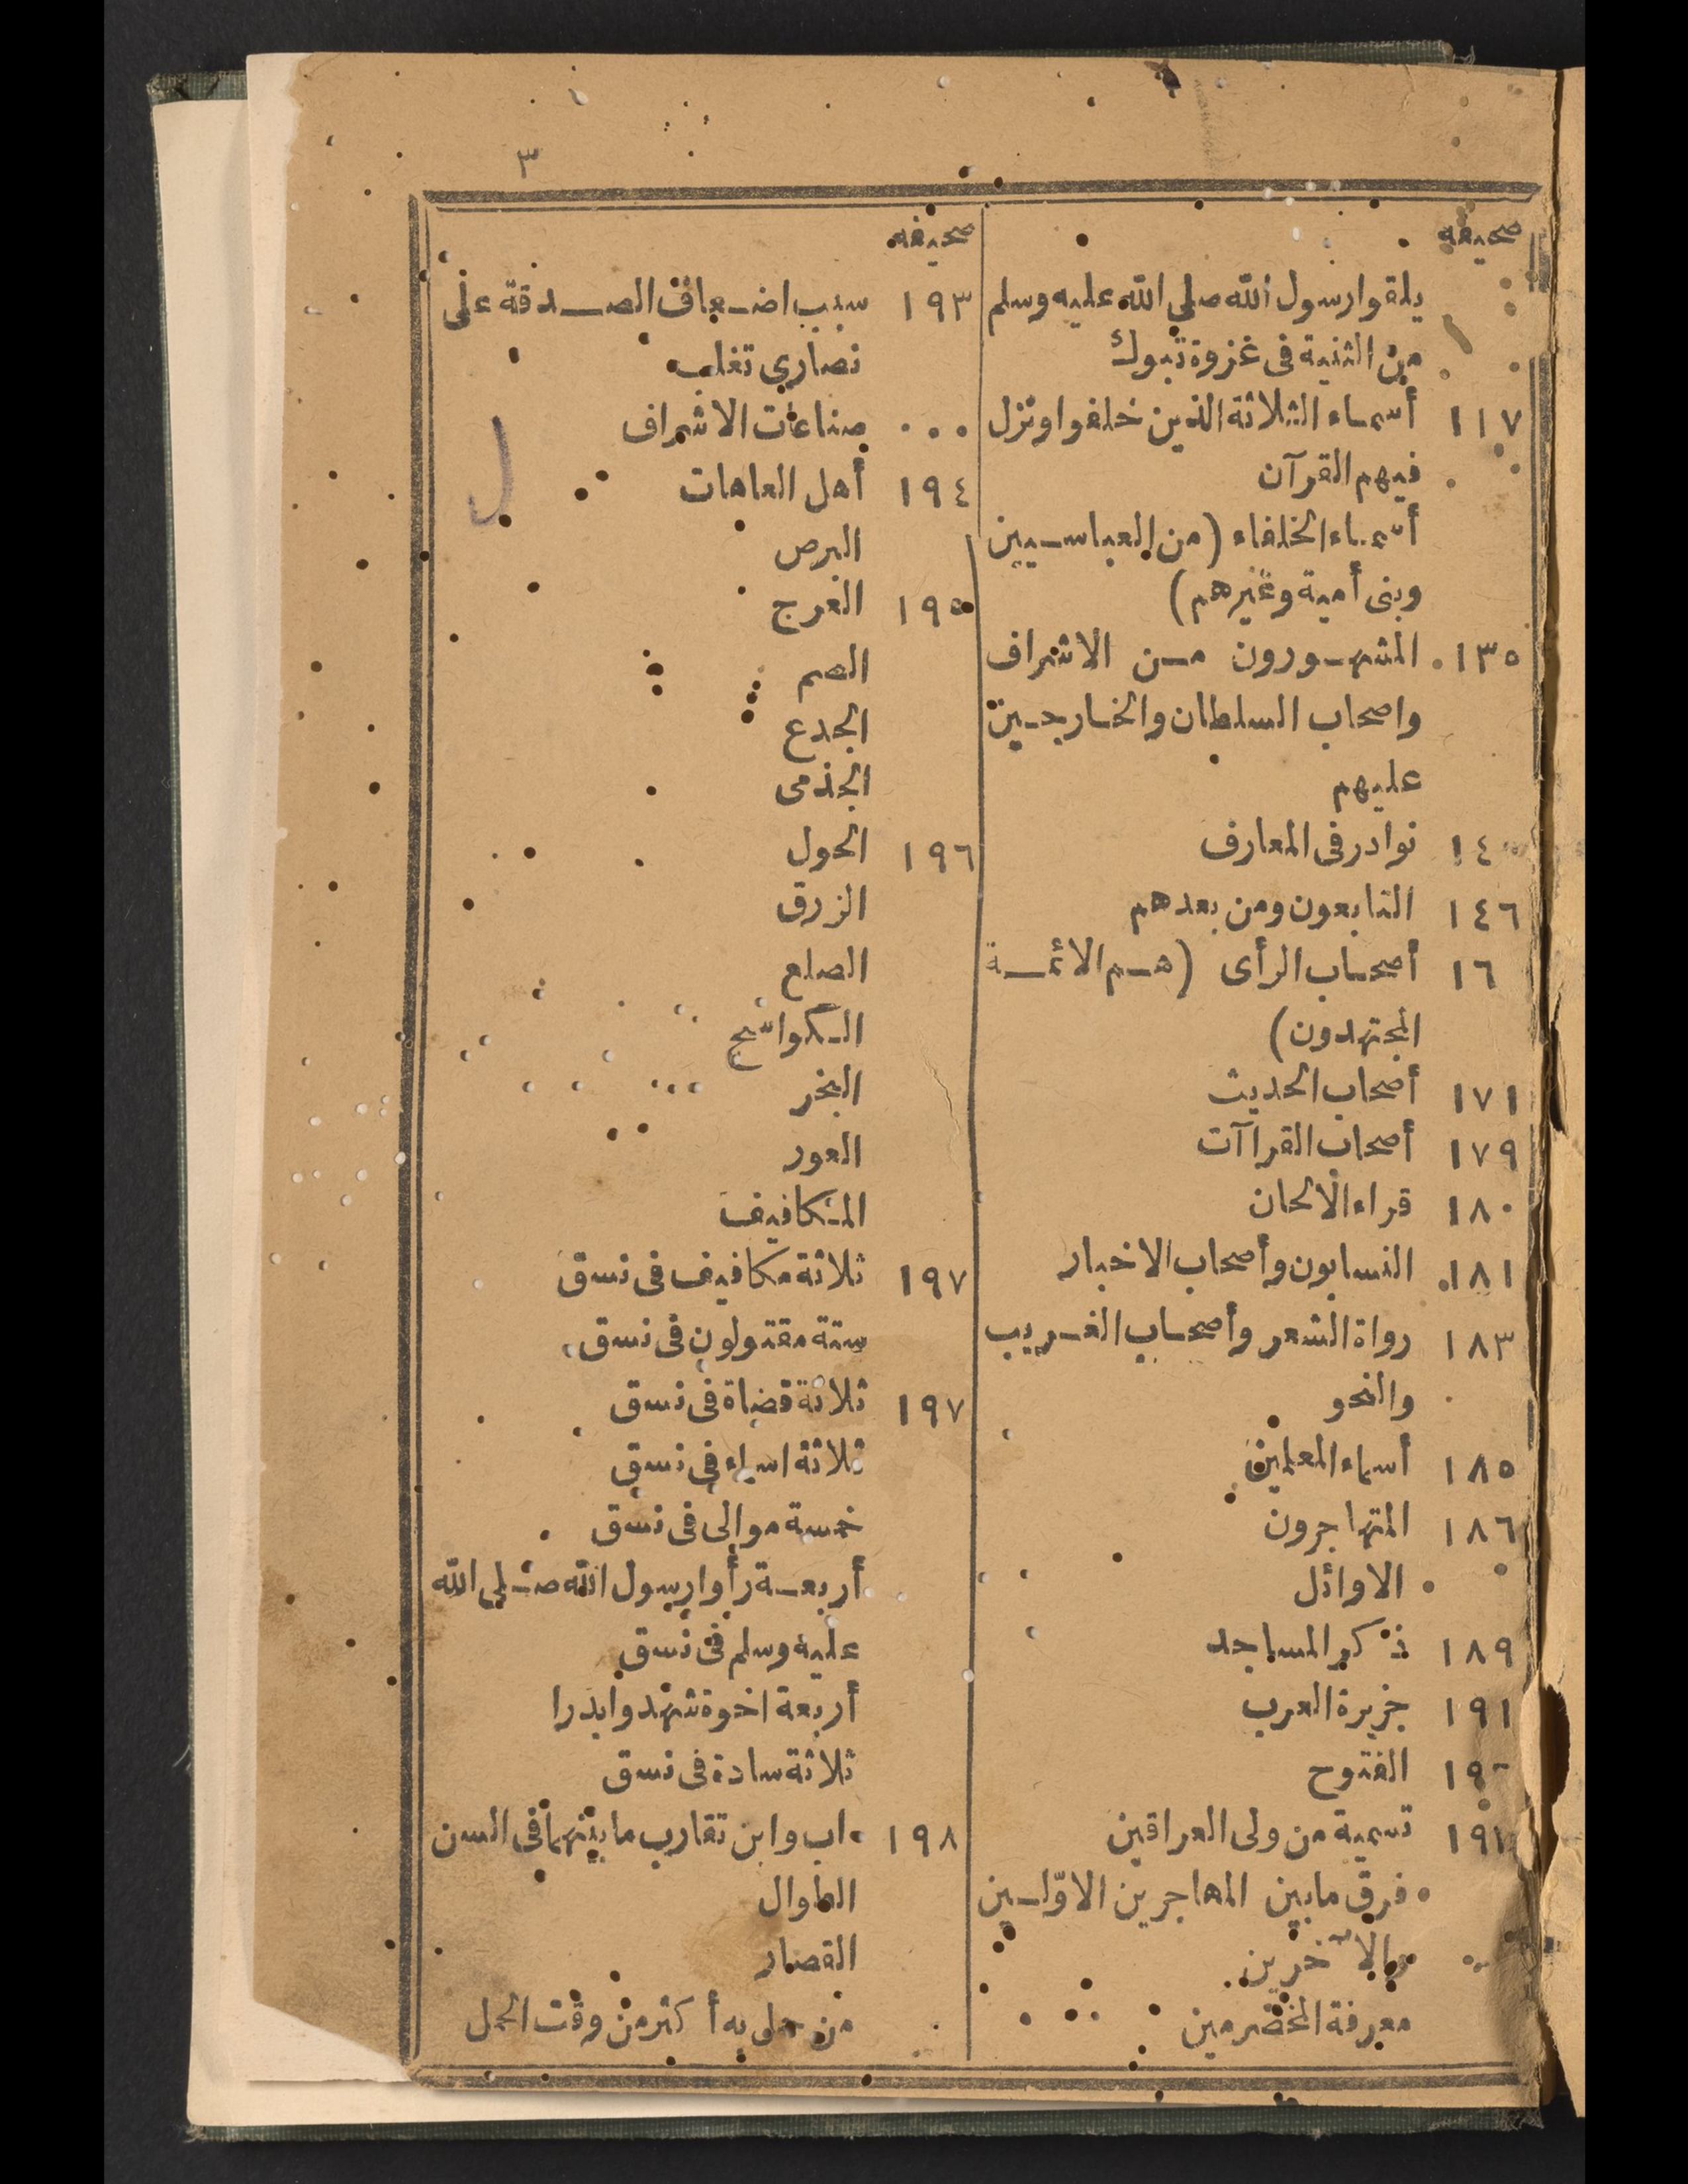 ٣
صحيفه
يلقوا رسول الله صلى الله عليه وسلم
من الثنية فى غزوة تبوك
١١٧ أسماء الثلاثة الذين خلفوا ونزل
فيهم القرآن
أسماء الخلفاء (من العباسيين
وبنى أمية وغيرهم)
١٣٥ المشهورون من الاشراف
واصحاب السلطان والخارجين
عليهم
١٤ نوادر فى المعارف
١٤٦ التابعون ومن بعدهم
١٦ أصحاب الرأى (هم الائمة
المجتهدون)
١٧١ أصحاب الحديث
١٧٩ أصحاب القراآت
١٨٠ قراء الالحان
١٨١ النسابون وأصحاب الاخبار
١٨٣ رواة الشعر وأصحاب الغريب
والنحو
١٨٥ أسماء المعلمين
١٨٦ المتهاجرون
الاوائل
١٨٩ ذكر المساجد
١٩١ جزيرة العرب
١٩ الفتوح
١٩ تسمية من ولى العراقين
فرق مابين المهاجرين الاوّلين
والآخرين
معرفة المخضرمين
صحيفه
١٩٣ سبب اضعاف الصدقة على
نصارى تغلب
صناعات الاشراف
١٩٤ أهل العاهات
البرص
١٩٥ العرج
الصم
الجدع
الجذمى
١٩٦ الحول
الزرق
الصلع
الكواسج
البخر
العور
المكافيف
١٩٧ ثلاثة مكافيف فى نسق
ستة مقتولون فى نسق
١٩٧ ثلاثة قضاة فى نسق
ثلاثة اسماء فى نسق
خمسة موالى فى نسق
أربعة رأوا رسول الله صلى الله
عليه وسلم فى نسق
أربعة اخوة شهدوا بدرا
ثلاثة سادة فى نسق
١٩٨ اب وابن تقارب ما بينهما فى السن
الطوال
القصار
من حمل به أكثر من وقت الحمل